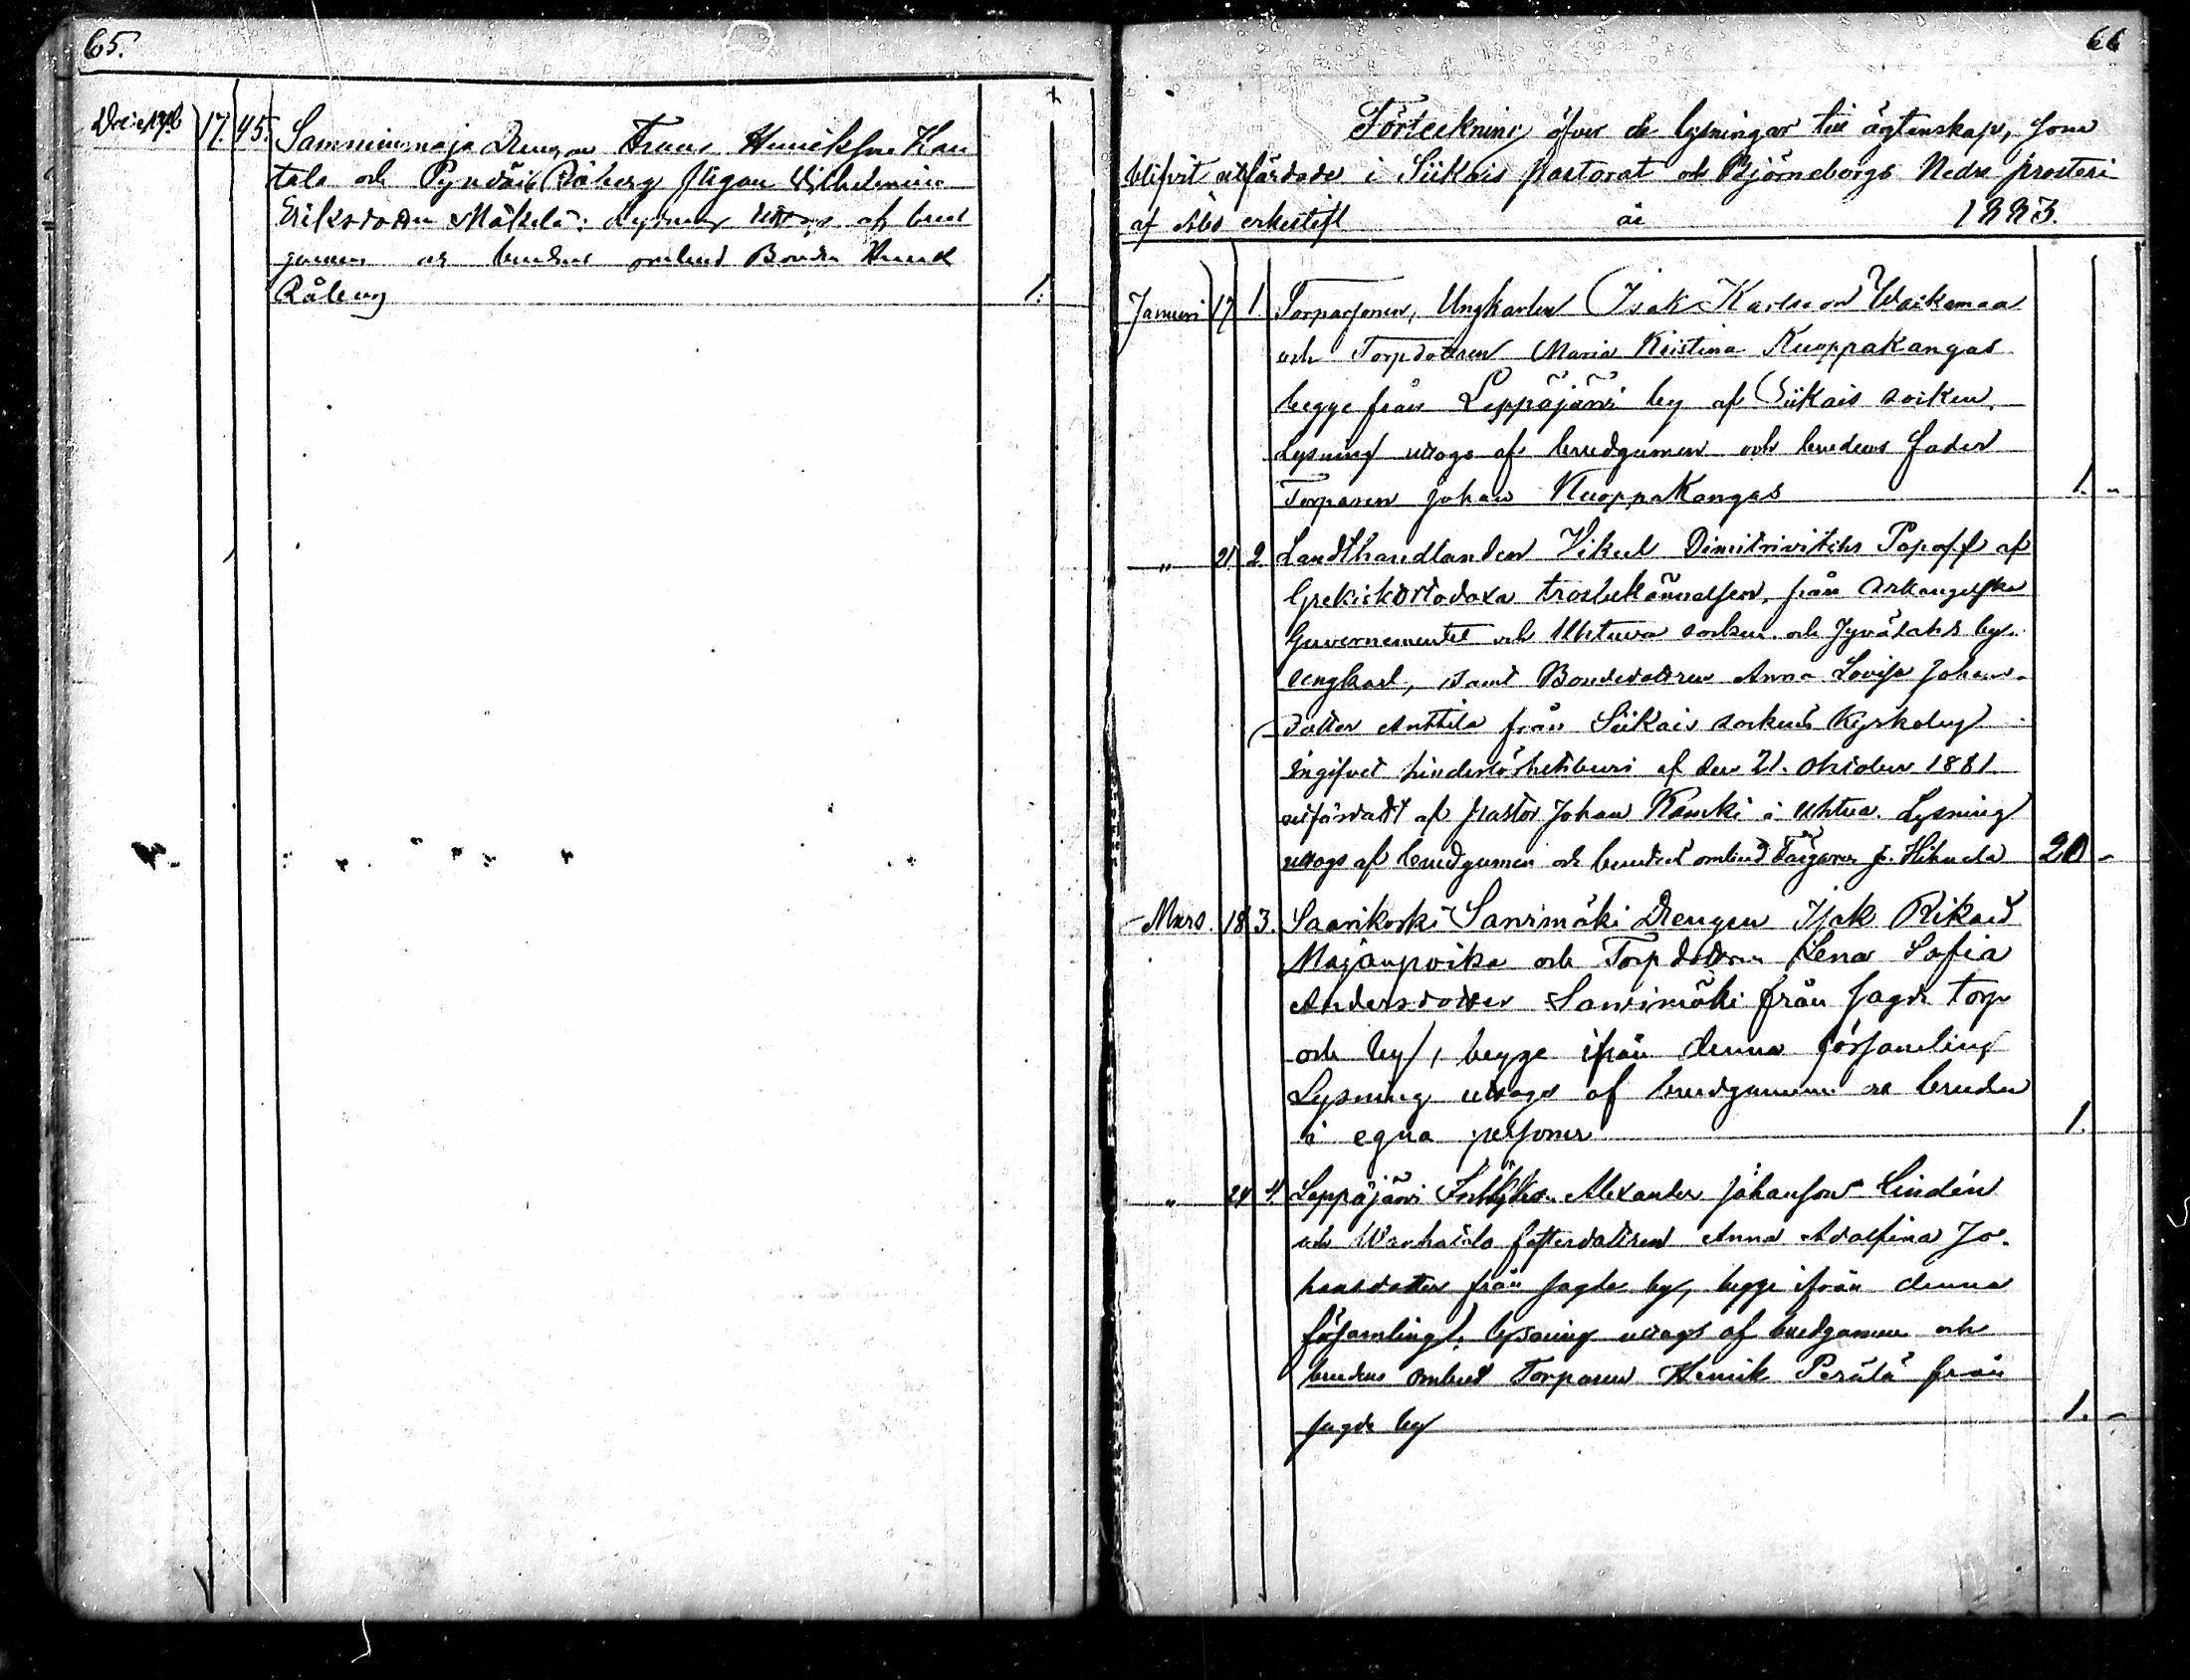 65.
Decemb 17. 45. Samminmaja Drengen Frans Henriksson Kan
tala och Råberg pigan Wilhelmina
Eriksdotter Mäkelä: Lysning uttogs af brud
gummen och brudens ombud Bonden Henrik
Råberg 1.
66
Förteckning öfver de lysningar till ägtenskap, som
blifvit utfärdade i Siikais pastorat och Björneborgs Nedre prosteri
af Åbo erkestift år 1883.
Januari 17 1. Torparsonen, Ungkarlen Isak Karlsson Waikamaa
och Torpdottren Maria Kristina Kuoppakangas
begge från Leppäjärvi by af Siikais socken.
Lysning uttogs af brudgummen och brudens fader
Torparen Johan Kuoppakangas 1. "
" 21. 2. Landthandlanden Dimitrivitsch Popoff af
Grekiskortodoxa trosbekännelsen, från Arkangelska
Guvernementet och Uhtuwa socken och Jyvälahs by.
ungkarl, samt Bondedottren Anna Lovisa Johans-
dotter Anttila från Siikais sockens Kyrkoby
Ingifvet hinderlöshetsbevis af den 21. Oktober 1881.
utfärdadt af pastor Johan i Uhtua. Lysning
uttogs af brudgummen och brudens ombud J. 20 -
Mars. 18 3. Saarikoski Sansimäki Drengen Isak Rikard
Majanpoika och Torpdottren Lena Sofia
Andersdotter Sansimäki från sagde torp
och by, begge ifrån denna församling
Lysning uttogs af brudgummen och bruden
i egna personer 1.
" 24 4. Leppäjärvi Alexander Johansson Lindén
och fosterdottren Anna Adolfina Jo-
hansdotter från sagde by, begge ifrån denna
församling. lysning uttogs af brudgummen och
brudens ombud Torparen Henrik Perälä från
sagde by 1. -